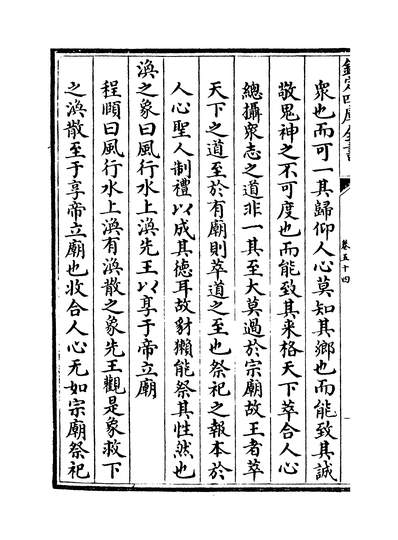 欽定四庫全書
卷五十四
衆也而可一其歸仰人心莫知其鄉也而能致其誠
敬鬼神之不可度也而能致其来格天下萃合人心
總攝衆志之道非一其至大莫過於宗廟故王者萃
天下之道至於有廟則萃道之至也祭祀之報本於
人心聖人制禮以成其徳耳故豺獺能祭其性然也
渙之象曰風行水上渙先王以享于帝立廟
程頤曰風行水上渙有渙散之象先王觀是象救下
之渙散至于享帝立廟也收合人心无如宗廟祭祀